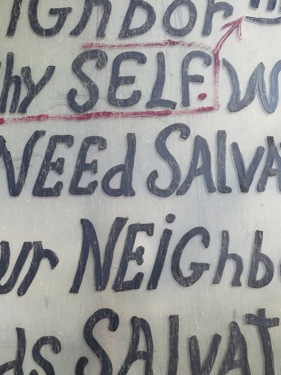 ighbor
hy SELF. W
NEEd SALVA
ur NEighb
ds SALVAT